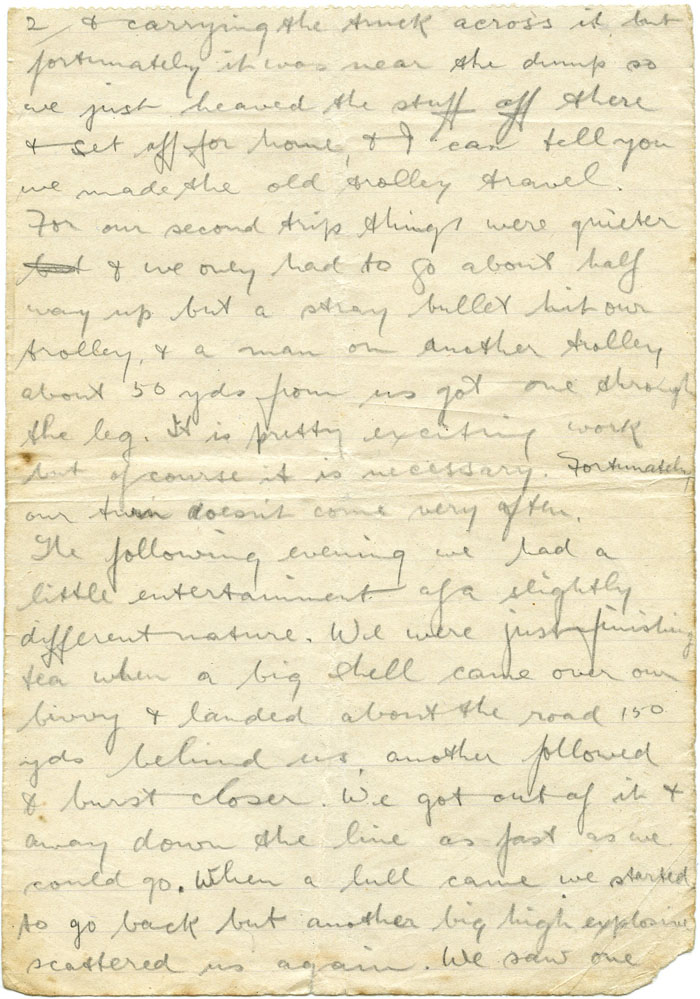 2/ & carrying the truck across it, but
fortunately it was near the dump so
we just heaved the stuff off there
& set off for home, & I can tell you
we made the old trolley travel.
For our second trip things were quieter
but & we only had to go about half
way up but a stray bullet hit our
trolley, & a man on another trolley
about 50 yds from us got one through
the leg. It is pretty exciting work
but of course it is necessary. Fortunately
our turn doesn't come very often.
The following evening we had a
little entertainment of a slightly
different nature. We were just finishing
tea when a big shell came over our
bivvy & landed about the road 150
yds behind us, another followed
& burst closer. We got out of it &
away down the line as fast as we
could go. When a lull came we started
to go back but another big high explosive
scattered us again. We saw one